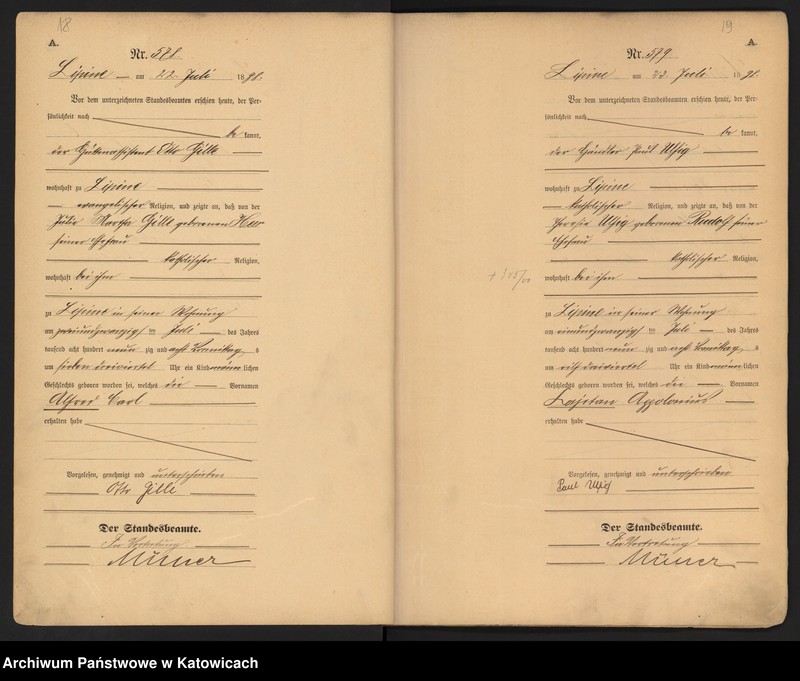 18
A.
Nr. 578.
Lipine am 22. Juli 1898.
Vor dem unterzeichneten Standesbeamten erschien heute, der Per-
sönlichkeit nach
be kannt,
der Hüttenassistent Otto Gille
wohnhaft zu Lipine
evangelischer Religion, und zeigte an, daß von der
Julie Martha Gille geborenen
seiner Ehefrau
katholischer Religion,
wohnhaft bei ihm
zu Lipine in seiner Wohnung
am zweiundzwanzigsten Juli des Jahres
tausend acht hundert neunzig und acht Vormittags
um sieben dreiviertel Uhr ein Kind männlichen
Geschlechts geboren worden sei, welches die Vornamen
Alfred Carl
erhalten habe
Vorgelesen, genehmigt und unterschrieben
Otto Gille
Der Standesbeamte.
In Vertretung
19
A.
Nr. 579
Lipine am 22. Juli 1898.
Vor dem unterzeichneten Standesbeamten erschien heute, der Per-
sönlichkeit nach
be kannt,
der Händler Paul Ulfig
wohnhaft zu Lipine
katholischer Religion, und zeigte an, daß von der
Ulfig geborenen Rudolf seiner
Ehefrau
katholischer Religion,
wohnhaft bei ihm
zu Lipine in seiner Wohnung
am einundzwanzigsten Juli des Jahres
tausend acht hundert neunzig und acht Vormittags
um elf dreiviertel Uhr ein Kind männlichen
Geschlechts geboren worden sei, welches die Vornamen
Kajetan Appolonius
erhalten habe
Vorgelesen, genehmigt und unterschrieben
Paul Ulfig
Der Standesbeamte.
In Vertretung
Archiwum Państwowe w Katowicach